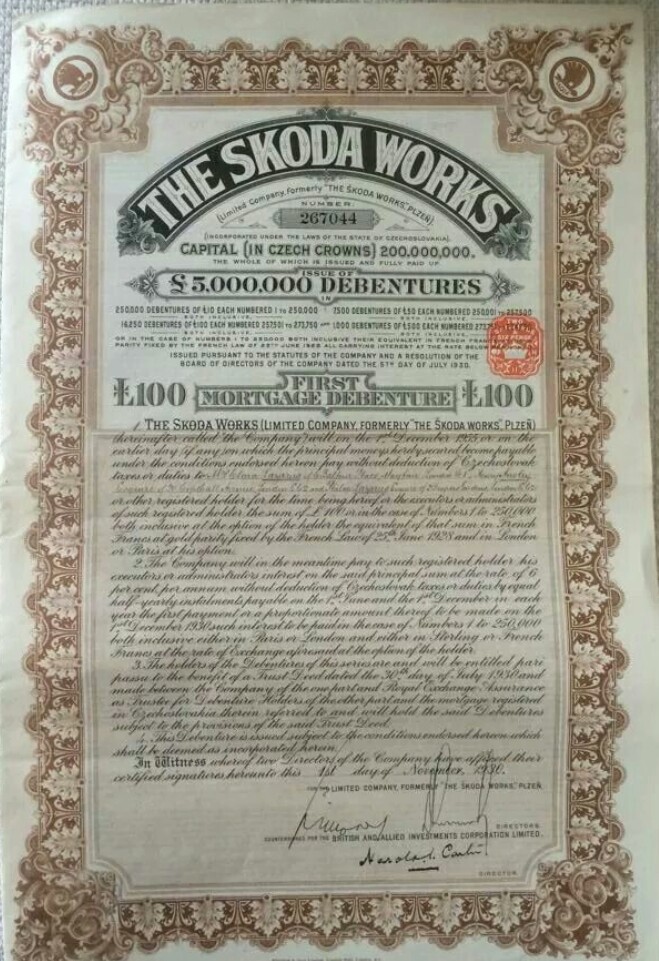 THE SKODA WORKS
(Limited Company, formerly "THE ŠKODA WORKS" PLZEŇ)
NUMBER.
267044
(INCORPORATED UNDER THE LAWS OF THE STATE OF CZECHOSLOVAKIA).
CAPITAL (IN CZECH CROWNS) 200,000,000.
THE WHOLE OF WHICH IS ISSUED AND FULLY PAID UP.
ISSUE OF
£5,000,000 DEBENTURES
IN
250,000 DEBENTURES OF £10 EACH NUMBERED 1 TO 250,000 7,500 DEBENTURES OF £50 EACH NUMBERED 250,001 TO 257,500
BOTH INCLUSIVE, BOTH INCLUSIVE,
16,250 DEBENTURES OF £100 EACH NUMBERED 257,501 TO 273,750 AND 1,000 DEBENTURES OF £500 EACH NUMBERED
BOTH INCLUSIVE, BOTH INCLUSIVE,
OR IN THE CASE OF NUMBERS 1 TO 250,000 BOTH INCLUSIVE THEIR EQUIVALENT IN FRENCH
PARITY FIXED BY THE FRENCH LAW OF 25TH JUNE 1928 ALL CARRYING INTEREST AT THE RATE
ISSUED PURSUANT TO THE STATUTES OF THE COMPANY AND A RESOLUTION OF THE
BOARD OF DIRECTORS OF THE COMPANY DATED THE 5TH DAY OF JULY 1930.
TWO
SIX PENCE
£100 FIRST MORTGAGE DEBENTURE £100
1. THE SKODA WORKS (LIMITED COMPANY, FORMERLY "THE ŠKODA WORKS" PLZEŇ)
(hereinafter called the Company) will on the 1st December 1955 or on the
earlier day (if any) on which the principal moneys hereby secured become payable
under the conditions endorsed hereon pay without deduction of Czechoslovak
taxes or duties to
or other registered holder for the time being hereof or the executors or administrators
of such registered holder the sum of £100 or in the case of Numbers 1 to 250,000
both inclusive at the option of the holder the equivalent of that sum in French
Francs at gold parity fixed by the French Law of 25th June 1928 and in London
or Paris at his option.
2. The Company will in the meantime pay to such registered holder his
executors or administrators interest on the said principal sum at the rate of 6
per cent. per annum without deduction of Czechoslovak taxes or duties by equal
half-yearly instalments payable on the 1st June and the 1st December in each
year the first payment or a proportionate amount thereof to be made on the
1st December 1930 such interest to be paid in the case of Numbers 1 to 250,000
both inclusive either in Paris or London and either in Sterling or French
Francs at the rate of Exchange aforesaid at the option of the holder.
3. The holders of the Debentures of this series are and will be entitled pari
passu to the benefit of a Trust Deed dated the 30th day of July 1930 and
made between the Company of the one part and Royal Exchange Assurance
as Trustee for Debenture Holders of the other part and the mortgage registered
in Czechoslovakia therein referred to and will hold the said Debentures
subject to the provisions of the said Trust Deed.
4. This Debenture is issued subject to the conditions endorsed hereon which
shall be deemed as incorporated herein.
In Witness whereof two Directors of the Company have affixed their
certified signatures hereunto this 1st day of November, 1930.
FOR THE LIMITED COMPANY, FORMERLY "THE ŠKODA WORKS" PLZEŇ
DIRECTORS.
COUNTERSIGNED FOR THE BRITISH AND ALLIED INVESTMENTS CORPORATION LIMITED.
DIRECTOR.